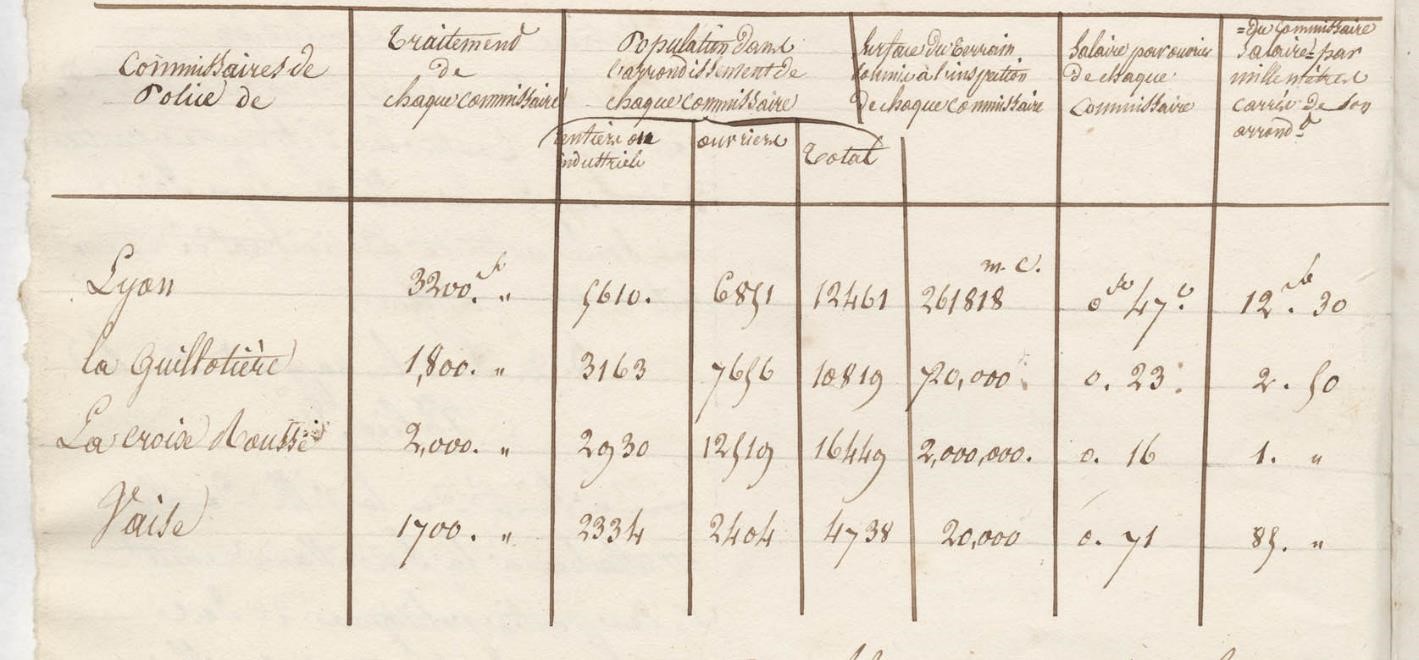 Commissaires de
Police de
Traitement
de
chaque commissaire
Population dans
l'arrondissement de
chaque commissaire
rentière ou
industriele
ouvriere
Total
Surface du terrain
soumis à l'inspection
de chaque commissaire
Salaire par ouvrier
de chaque
Commissaire
=du Commissaire
Salaire= par
mille mètres
carrés de son
arrond.t
m. C.
Lyon 3200.f " 5610. 6851 12461 261818 0 fr 47 c 12. fr 30
la Guillotière 1,800. " 3163 7656 10819 720,000 0. 23 2. 50
La croix Rousse 2,000. " 2930 12519 16449 2,000,000. 0. 16 1. "
Vaise 1700. " 2334 2404 4738 20,000 0. 71 85. "